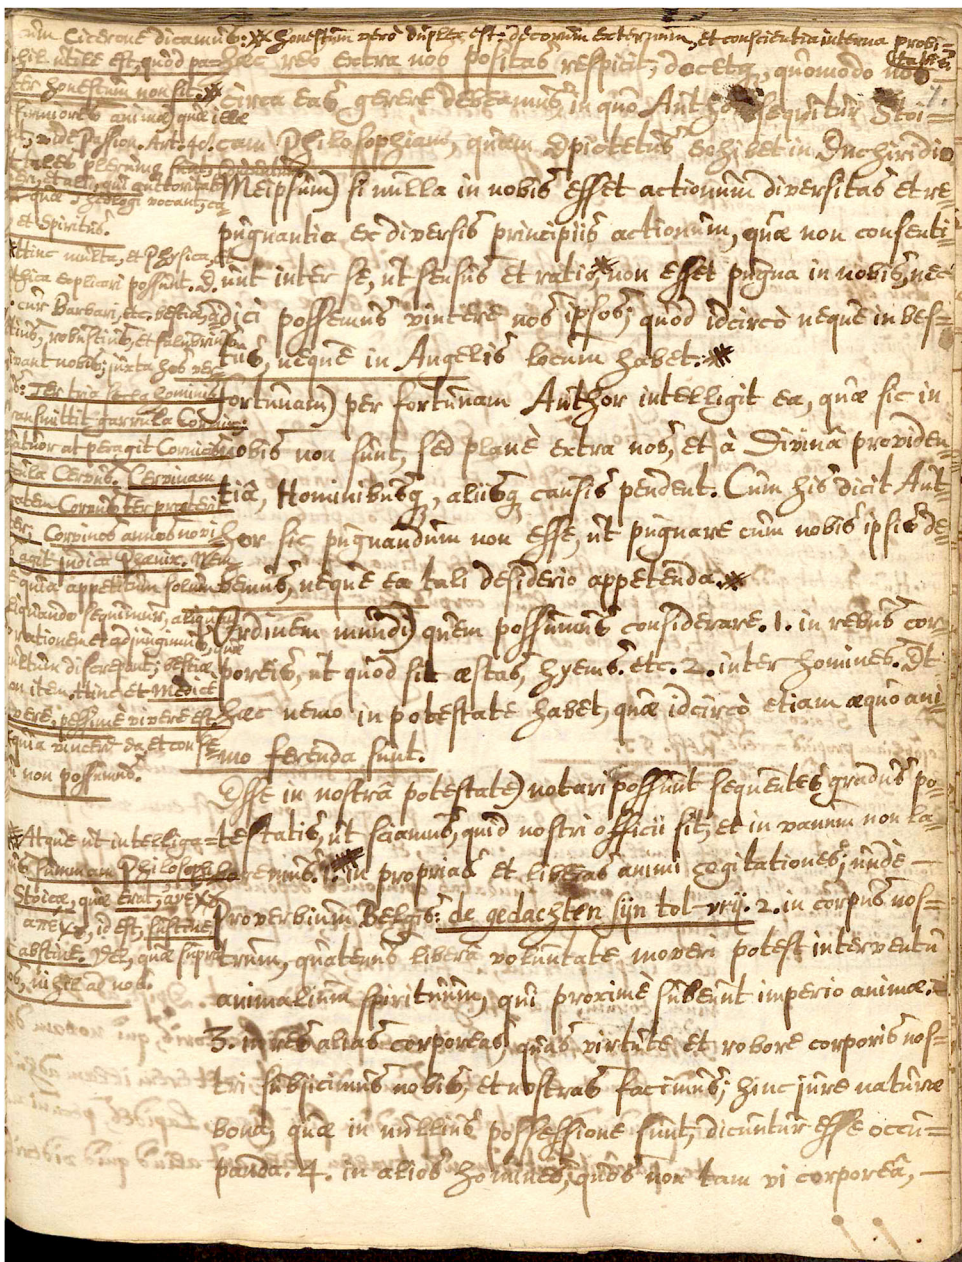 um Cicerone dicamus: honestum vero duplex est: decorum externum, et conscientia interna probi=
tatis.
hil utile est, quod pa=
honestum non sit.
firmiores animae quae illae
vide Passion. Art. 40.
qui auctoritate
quae Theologi vocant, ca
et Spiritus.
Hinc multa, et Physica, et
thica explicari possunt.
cur Barbari, etc. bestiae,
robustius, et salubrius
vivant nobis; juxta hos ver
Ter tria saecla hominis
transmittit garrula Cornix
at peragit Cornicis
saecla Cervus. Cervinam
aetatem Corvus ter praeterit
Corvinos annos novies
agit judice Phoenix.
quia appetitum solum
aliquando sequimur, aliquan
rationem et adjungimus, quae
multum discrepant; bestiae
non item. Hinc et Medice
vivere, pessime vivere est,
quia vincere ea, et conse
qui non possumus.
Atque ut intelliga=
summam Philosophiae
Stoicae, quae erat, ανεχου
απεχου, id est, sustine,
abstine. Vel, quae supra
nos, nihil ad nos.
haec res extra nos positas respicit, docetq, quomodo nos
circa eas gerere debeamus, in quo Author sequitur Stoi=
cam Philosophiam, quam Epictetus exhibet in Enchiridio
Meipsum) si nulla in nobis esset actionum diversitas et re=
pugnantia ex diversis principiis actionum, quae non consenti=
unt inter se, ut sensus et ratio, non esset pugna in nobis, nec
dici possemus vincere nos ipsos; quod idcirco neque in bes=
tiis, neque in Angelis locum habet.
Fortunam) per fortunam Author intelligit ea, quae sic in
nobis non sunt, sed plane extra nos, et à Divinâ providen=
tiâ, Hominibusq, aliisq causis pendent. Cum his dicit Aut=
hor sic pugnandum non esse, ut pugnare cum nobis ipsis de=
bemus, neque ea tali desiderio appetenda.
Ordinem mundi) quem possumus considerare. 1. in rebus cor=
poreis, ut quod sit aestas, hyems. etc. 2. inter homines. Et
haec nemo in potestate habet, quae idcircò etiam aequo ani=
mo ferenda sunt.
Esse in nostrâ potestate) notari possunt sequentes gradus po=
testatis, ut sciamus, quid nostri officii sit, et in vanum non la=
boremus. 1. in proprias et liberas animi cogitationes, unde
Proverbium Belgis: de gedachten sijn tol vrij. 2. in corpus nos=
trum, quatenus libera voluntate moveri potest interventu
animalium spirituum, qui proximè subeunt imperio animae.
3. in res alias corporeas, quas virtute et robore corporis nos=
tri subjicimus nobis, et nostras facimus; hinc jure naturae
bona, quae in nullius possessione sunt, dicuntur esse occu=
panda. 4. in alios homines, quos non tam vi corporeâ,